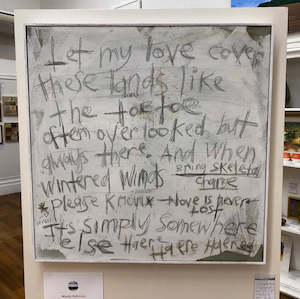 Let my love cover
these lands like
the toetoe
often overlooked but
always there. And when
wintered winds bring skeletal
change
please know love is never
lost
Its simply somewhere
else